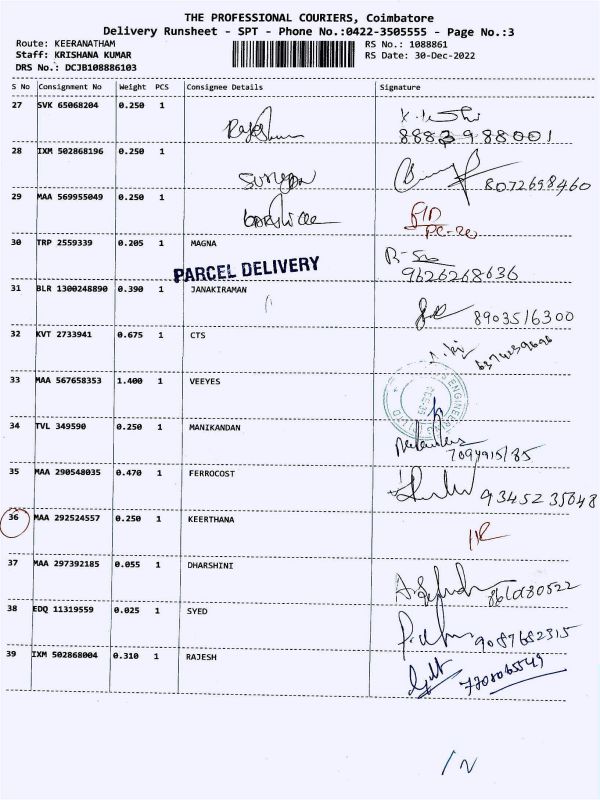 THE PROFESSIONAL COURIERS, Coimbatore
Delivery Runsheet - SPT - Phone No.:0422-3505555 - Page No.:3
Route: KEERANATHAM RS No.: 1088861
Staff: KRISHANA KUMAR RS Date: 30-Dec-2022
DRS No.: DCJB108886103
S No Consignment No Weight PCS Consignee Details Signature
27 SVK 65068204 0.250 1
28 IXM 502868196 0.250 1
8072698460
29 MAA 569955049 0.250 1
30 TRP 2559339 0.205 1 MAGNA
9626268636
PARCEL DELIVERY
31 BLR 1300248890 0.390 1 JANAKIRAMAN
8903516300
32 KVT 2733941 0.675 1 CTS
33 MAA 567658353 1.400 1 VEEYES
34 TVL 349590 0.250 1 MANIKANDAN
35 MAA 290548035 0.470 1 FERROCOST
36 MAA 292524557 0.250 1 KEERTHANA
37 MAA 297392185 0.055 1 DHARSHINI
38 EDQ 11319559 0.025 1 SYED
9087682315
39 IXM 502868004 0.310 1 RAJESH